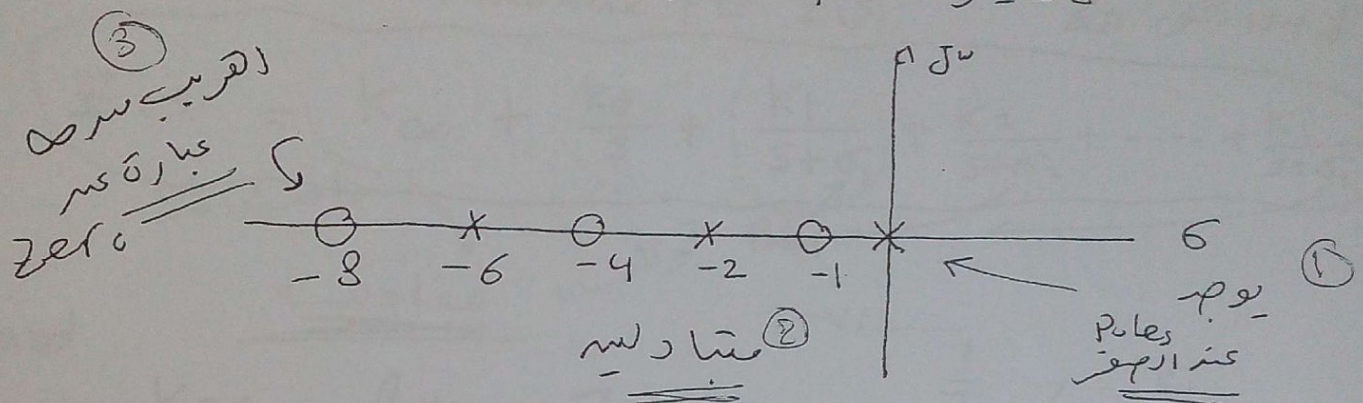 ③
القريب من ∞
عبارة عن
zero
Jω
σ
-8 -6 -4 -2 -1
① يوجد
Poles
عند الصفر
② متبادلين